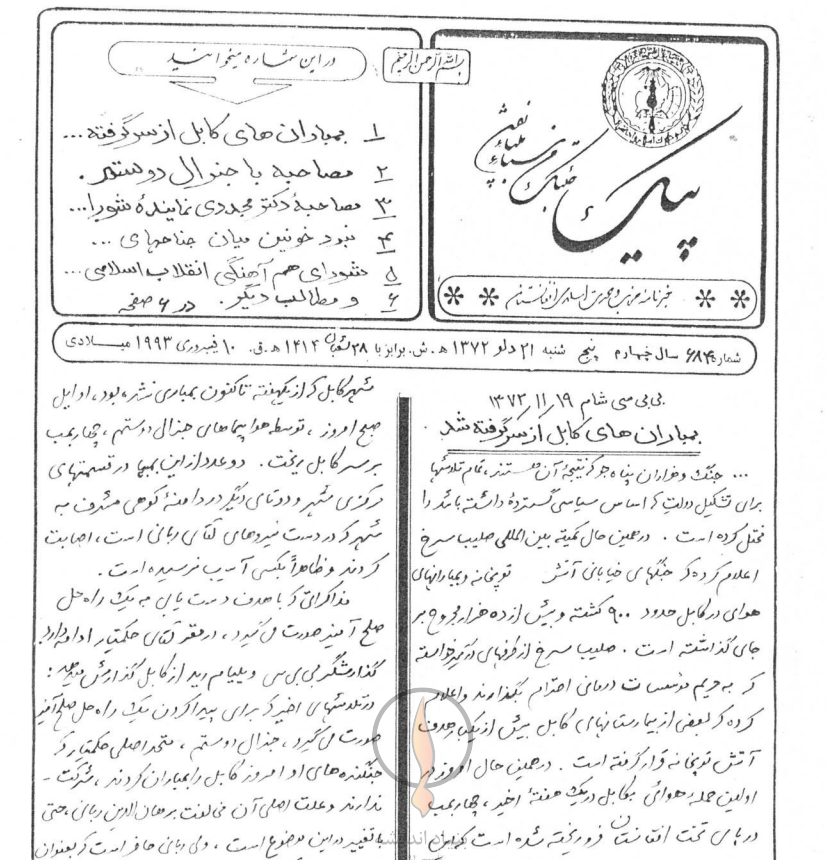 بسم الله الرحمن الرحیم
پیک
خبرنامهٔ حزب وحدت اسلامی افغانستان
در این شماره میخوانید
۱ بمباران های کابل از سر گرفته...
۲ مصاحبه با جنرال دوستم.
۳ مصاحبهٔ دکتر مجددی نمایندهٔ شورا...
۴ نبرد خونین میان جناحهای ...
۵ شورای هم آهنگی انقلاب اسلامی...
۶ و مطالب دیگر. در ۶ صفحه
شماره ۶۸۴ سال چهارم پنج شنبه ۲۱ دلو ۱۳۷۲ ه.ش. برابر با ۲۸ شعبان ۱۴۱۴ ه.ق. ۱۰ فبروری ۱۹۹۳ میلادی
بی بی سی شام ۱۹ ,۱۱ ,۱۳۷۲
بمباران های کابل از سر گرفته شد
... جنگ و فراران پناه جو که نتیجهٔ آن هستند، تمام تلاشها
برای تشکیل دولت که اساس سیاسی گسترده داشته باشد را
مختل کرده است . در همین حال کمیته بین المللی صلیب سرخ
اعلام کرده که جنگهای خیابانی آتش توپخانه و بمبارانهای
هوای در کابل حدود ۹۰۰ کشته و بیش از ده هزار مجروح بر
جای گذاشته است . صلیب سرخ از طرفهای درگیر خواسته
که به حریم موسسات درمانی احترام بگذارند و اعلام
کرده که بعضی از بیمارستانهای کابل بیش از یکبار هدف
آتش توپخانه قرار گرفته است . در همین حال امروز در
اولین حمله هوائی بکابل در یک هفتهٔ اخیر ، چهار بمب
در بای تخت افغانستان فرو ریخته شده است بگزارش
شهر کابل که از یکهفته تاکنون بمباری نشده بود، اوایل
صبح امروز ، توسط هواپیماهای جنرال دوستم ، چهار بمب
بر سر کابل ریخت . دو عدد از این بمبها در قسمتهای
مرکزی شهر و دو تای دیگر در دامنهٔ کوهی مشرف به
شهر که در دست نیروهای آقای ربانی است ، اصابت
کردند و ظاهراً بکسی آسیب نرسیده است .
مذاکراتی که با هدف دست یابی به یک راه حل
صلح آمیز صورت می گیرد ، در مقر آقای حکمتیار ادامه دارد.
گذارشگر بی بی سی ویلیام رید از کابل گذارش میدهد :
در تلاشهای اخیر که برای پیدا کردن یک راه حل صلح آمیز
صورت می گیرد ، جنرال دوستم ، متحد اصلی حکمتیار که
جنگنده های او امروز کابل را بمباران کردند ، شرکت -
ندارند و علت اصلی آن مخالفت برهان الدین ربانی ، حتی
با تغییر در این موضوع است ، ولی ربانی حاضر است که بعنوان